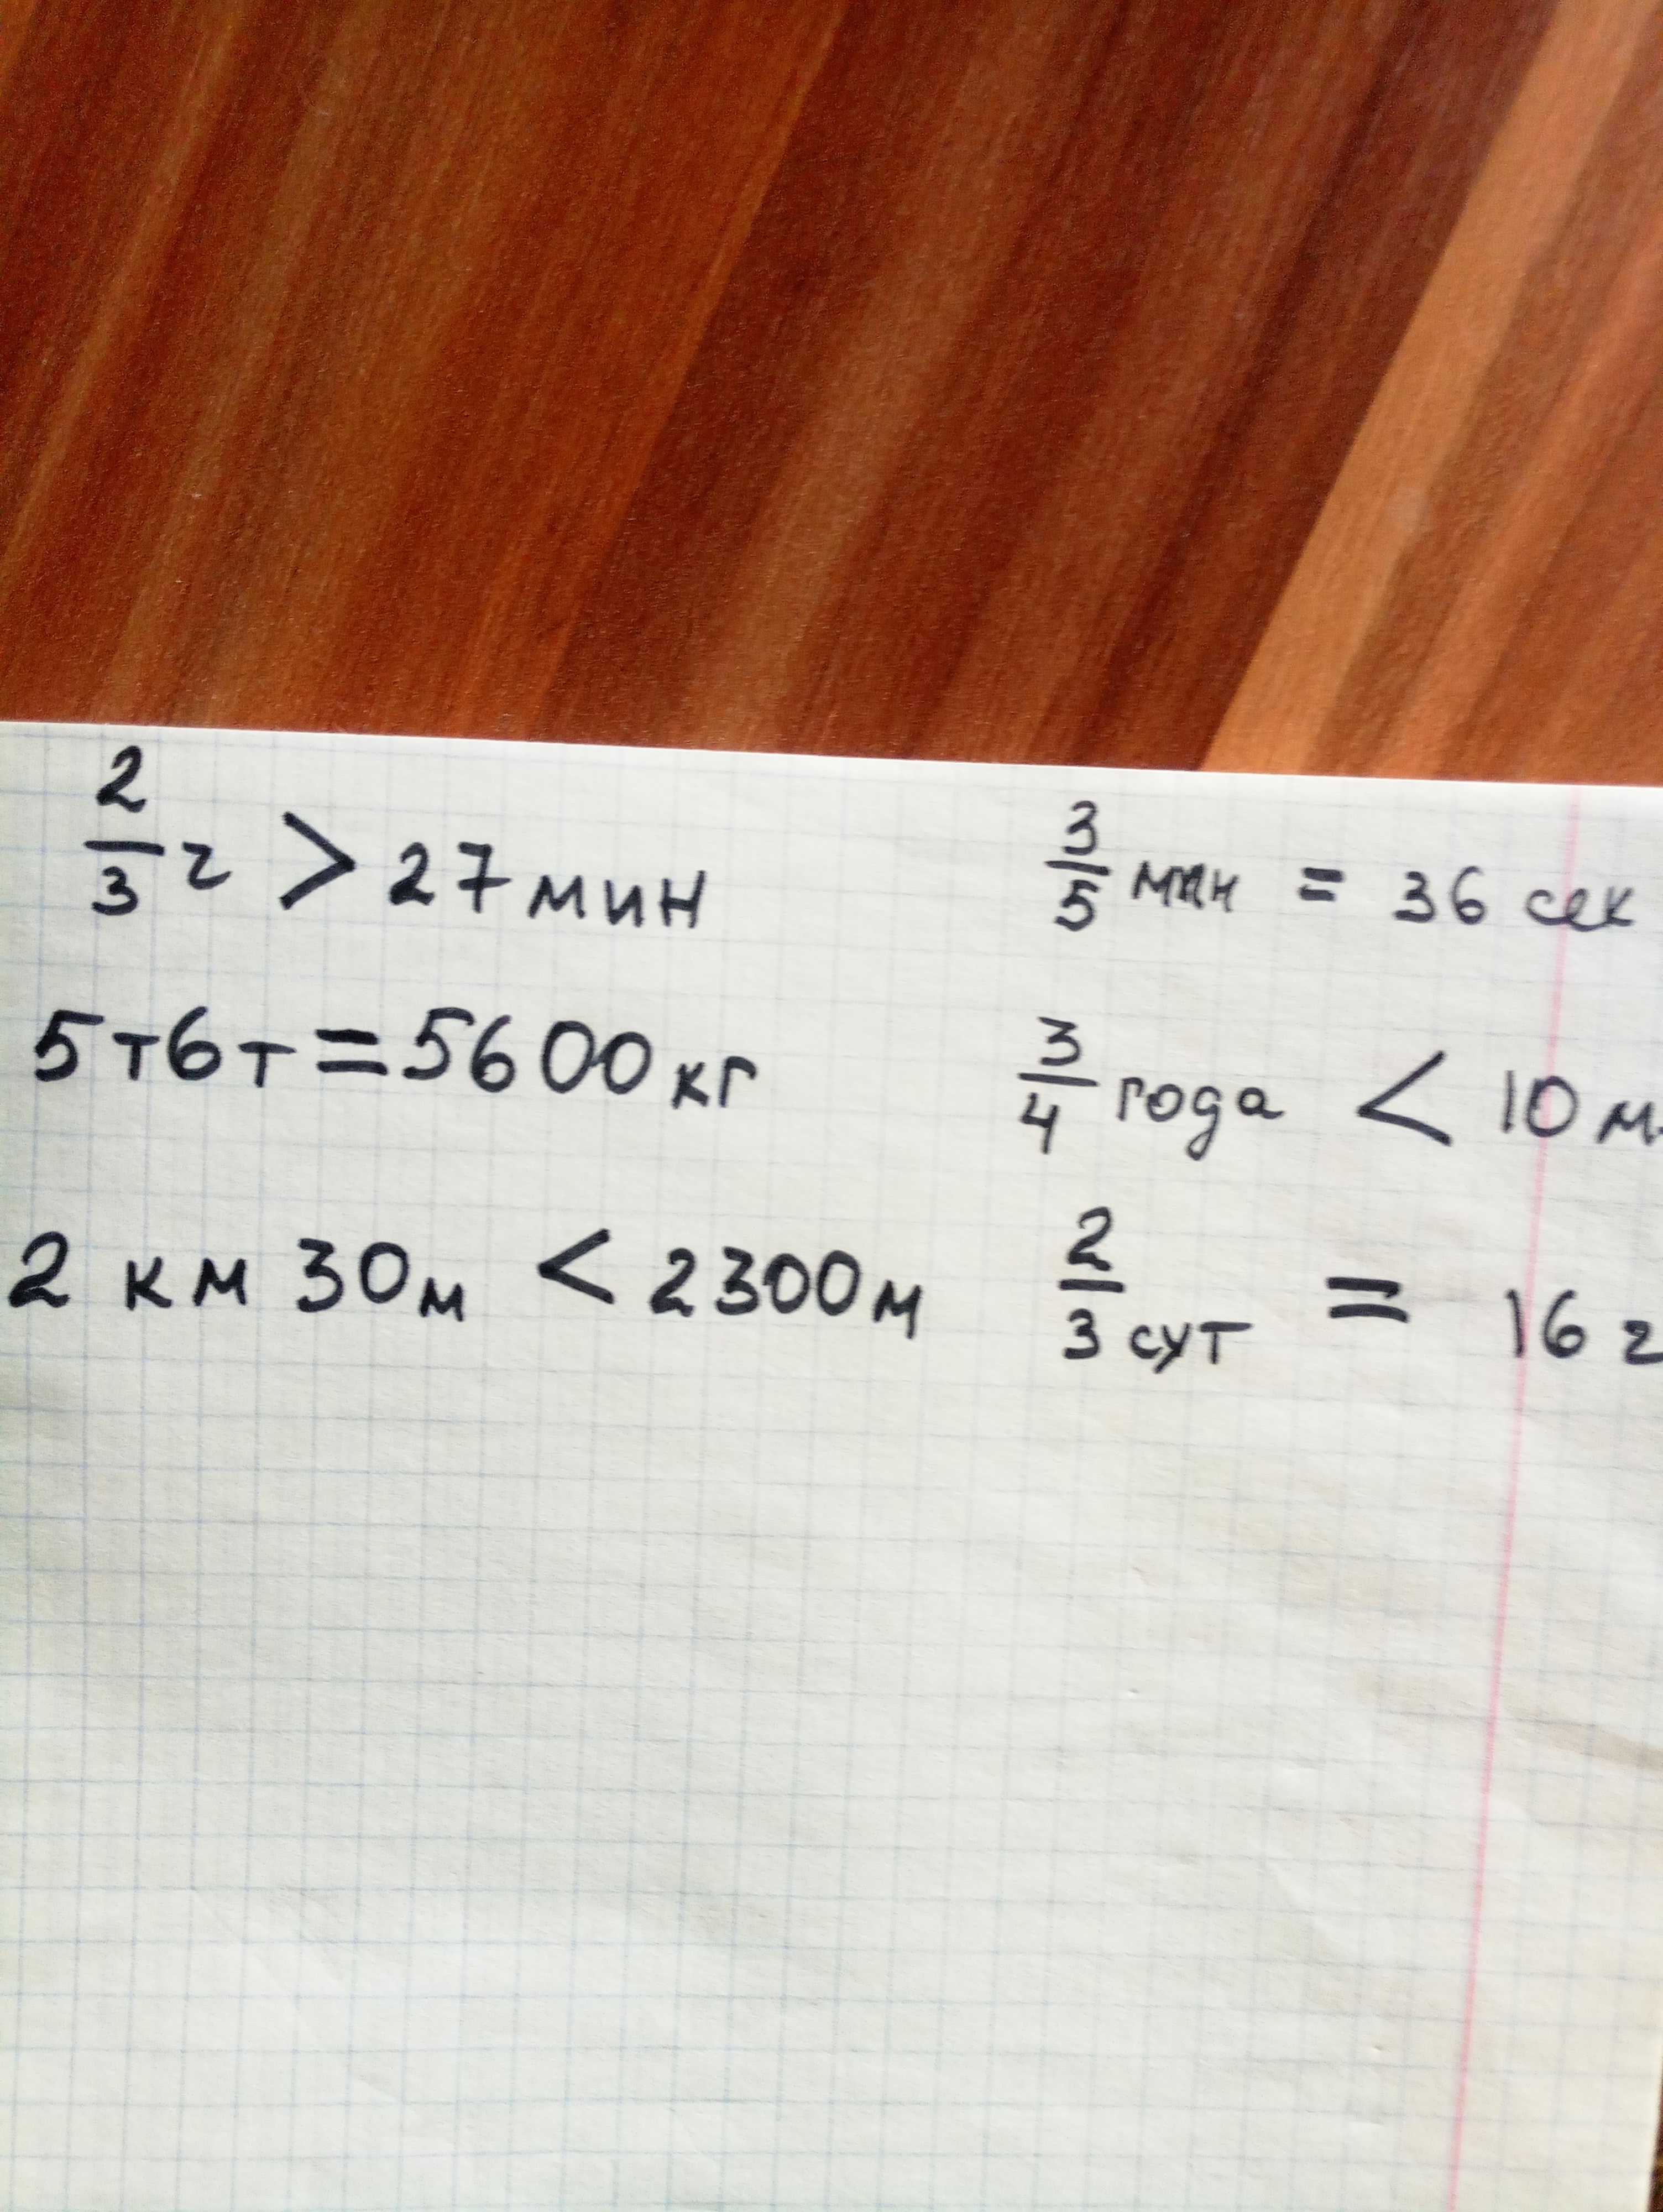 2/3 ч > 27 мин 3/5 мин = 36 сек
5т6т=5600 кг 3/4 года < 10 м
2 км 30м < 2300м 2/3 сут = 16 ч